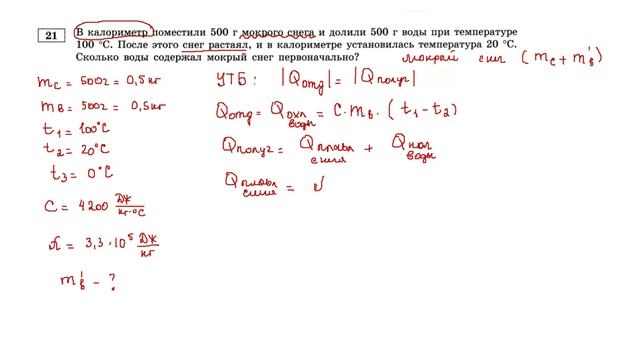 21 В калориметр поместили 500 г мокрого снега и долили 500 г воды при температуре
100 °С. После этого снег растаял, и в калориметре установилась температура 20 °С.
Сколько воды содержал мокрый снег первоначально?
мокрый снег (mс + mв')
mс = 500г = 0,5 кг
mв = 500г = 0,5кг
t₁ = 100°C
t₂ = 20°C
t₃ = 0°C
C = 4200 Дж/кг·°C
λ = 3,3·10⁵ Дж/кг
mв' - ?
УТБ: |Qотд| = |Qполуч|
Qотд = Qохл воды = C·mв·(t₁ - t₂)
Qполуч = Qплавл снега + Qнагр воды
Qплавл снега =